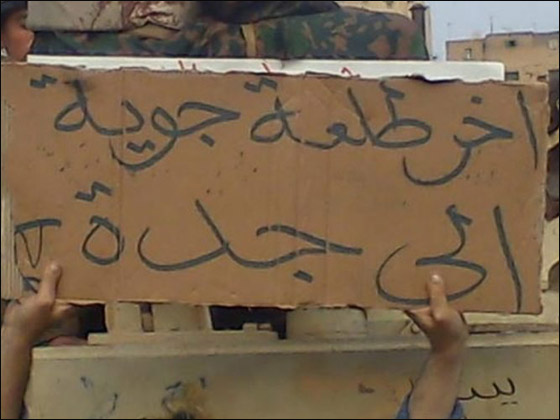 اخر طلعة جوية
الى جدة